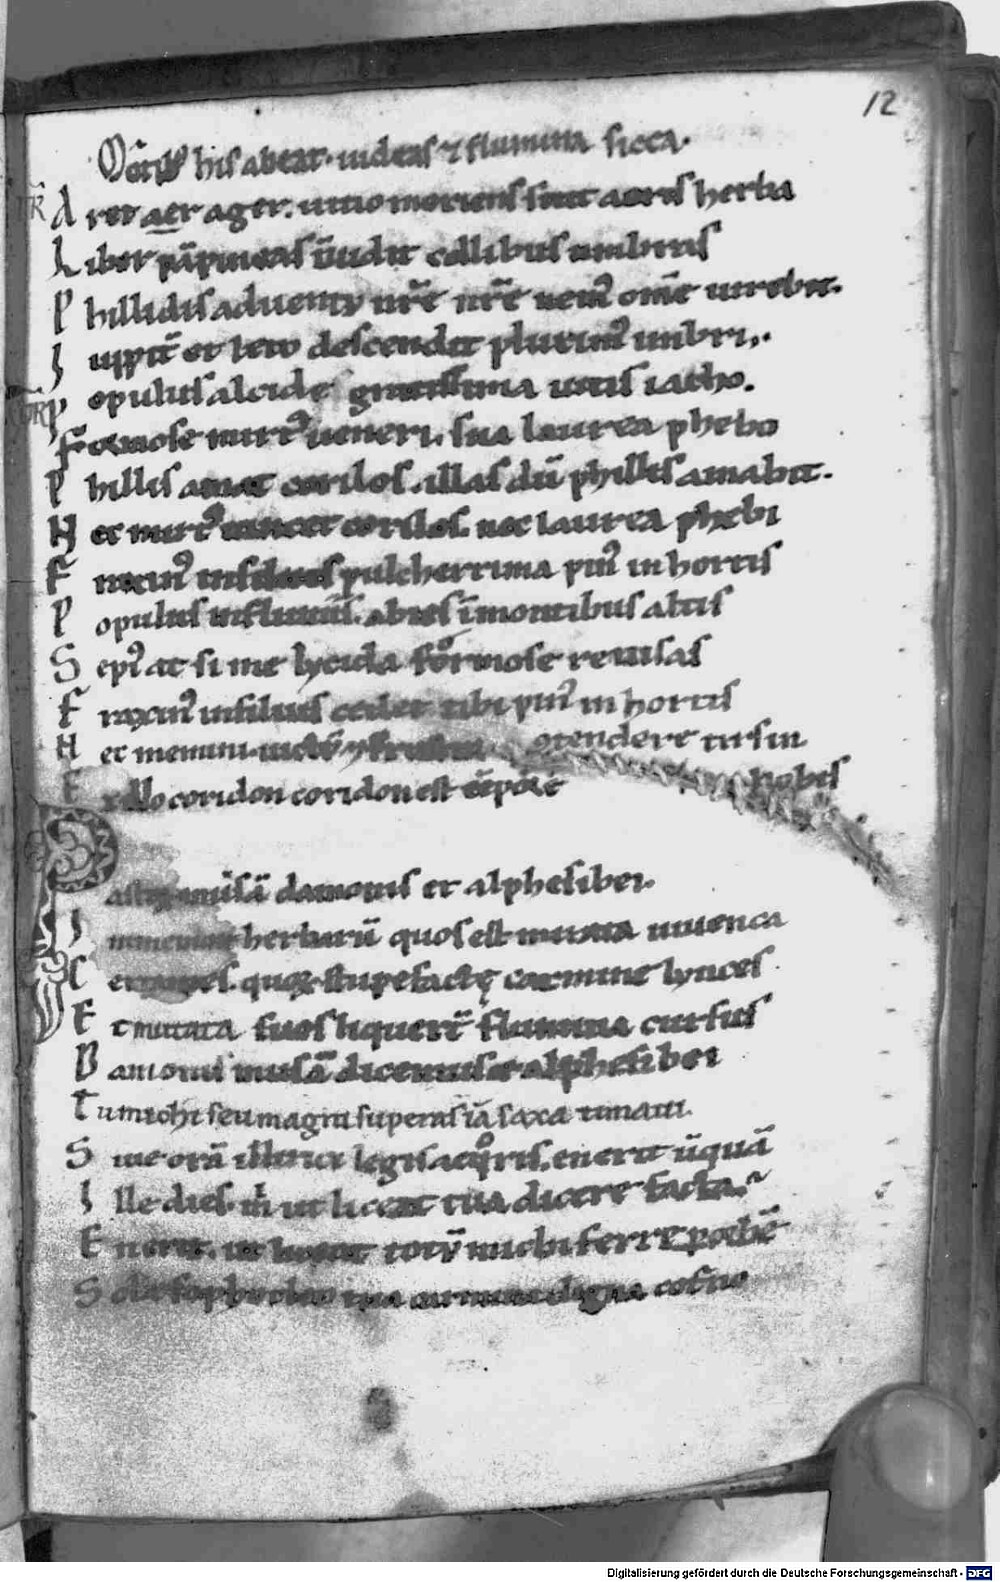 12
Mōtib; his abeat. uideas ⁊ flumina sicca.
A ret aer ager. uitio moriens sitit aeris herba
L iber pāpineas īuidit collibus umbras
P hillidis aduentu nr̄e nr̄e nem᾽ om̄e uirebit.
I uppit̄ et leto descendet plurim᾽ imbri.
P opulus alcide gratissima uitis iacho.
F ormose mirt᾽ ueneri. sua laurea phebo
P hillis amat corilos. illas dū phillis amabit.
N ec mirt᾽ uincet corilos. nec laurea phebi
F raxin᾽ in siluis pulcherrima pin᾽ in hortis
P opulus in fluuiis. abies ī montibus altis
S epi᾽ at si me lycida formose reuisas
F raxin᾽ in siluis cedet tibi pin᾽ in hortis
N ec memini. uictū ⁊ frustra otendere tirsin
E x illo coridon coridon est tēpore nobis
P astorū mūsā damonis et alphesibei.
I nmemor herbarū quos est mirata iuuenca
C ertantes. quoꝝ stupefactę carmine lynces
E t mutata suos liquer̄t flumina cursus
D amonis musā dicemus et alphesibei
T u michi seu magni superas iā saxa timaui.
S iue orā illirici legis aequoris. en erit ūquā
I lle dies. m̄ ut liceat tua dicere facta.
E n erit. ut liceat totū michi ferre p orbē
S ola sophocleo tua carmina digna coturno
Digitalisierung gefördert durch die Deutsche Forschungsgemeinschaft - DFG